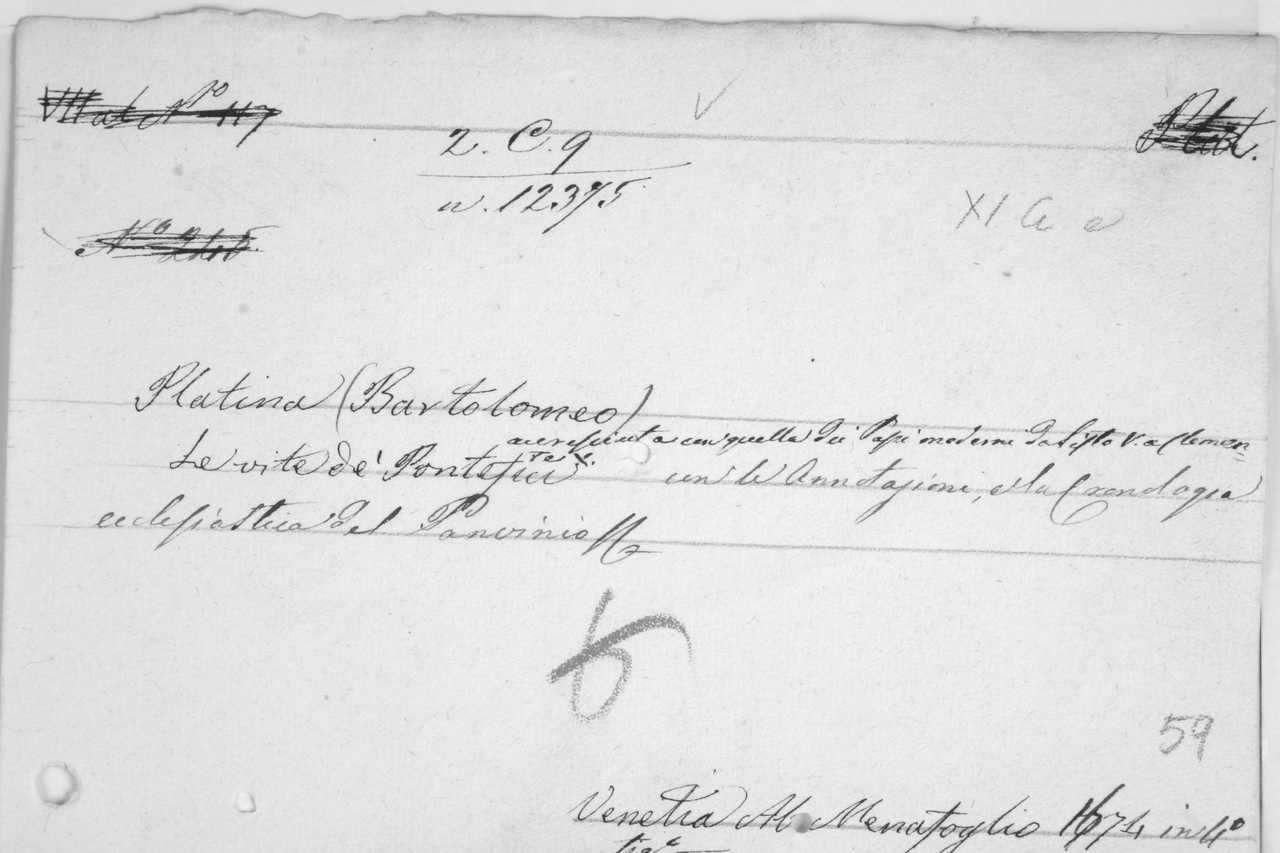 VII at Nº 117
2. C. 9
n. 12375
Plat.
XI G a
Nº
Platina (Bartolomeo)
accresciuta con quella dei Papi moderni da Sisto V. a Clemen=
te X.
Le vite de' Pontefici con le Annotazioni, e la Cronologia
ecclesiastica del Panvinio
6
59
Venetia Ab. Menafoglio 1674 in 4º